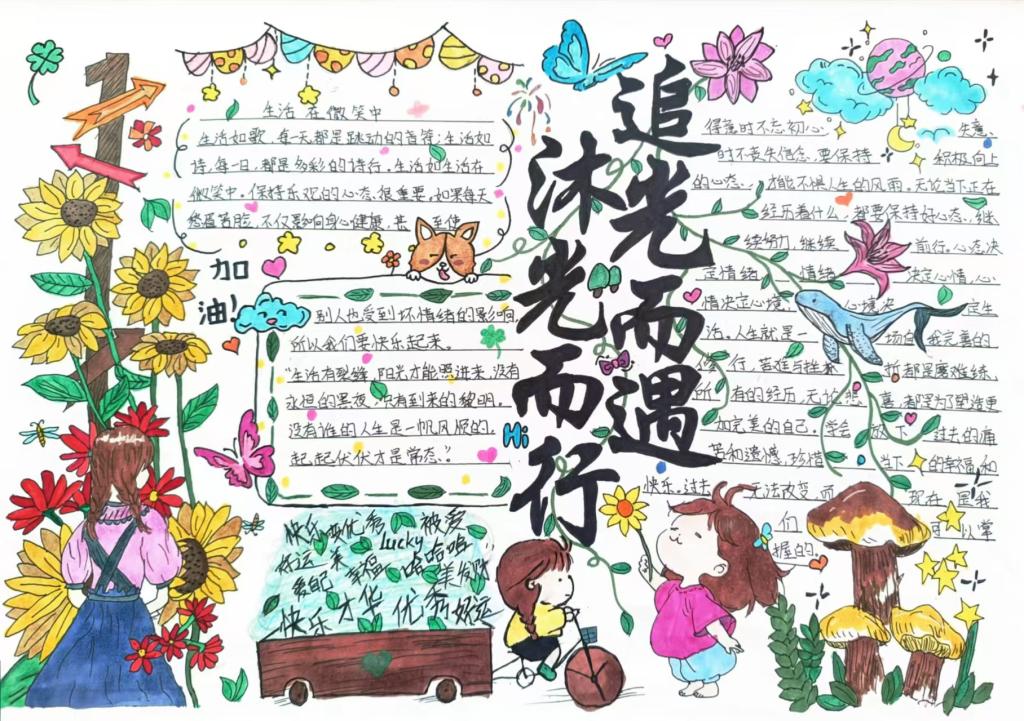 追光而遇
沐光而行
生活在微笑中
生活如歌,每天都是跳动的音符;生活如
诗,每一日,都是多彩的诗行。生活如生活在
微笑中。保持乐观的心态很重要。如果每天
愁眉苦脸,不仅影响身心健康,甚至使
加
油!
别人也受到坏情绪的影响,
所以我们要快乐起来。
“生活有裂缝,阳光才能照进来,没有
永恒的黑夜,只有到来的黎明。
没有谁的人生是一帆风顺的,
起起伏伏才是常态。”
Hi
快乐 优秀 被爱
好运 来 Lucky 哈哈哈
爱自己 幸福
快乐 才华 优秀 好运
得意时不忘初心,失意
时不丧失信念,要保持积极向上
的心态,才能不惧人生的风雨。无论当下正在
经历着什么,都要保持好心态,继
续努力,继续前行。心态决
定情绪,情绪决定心情,心
情决定心境,心境决定生
活。人生就是一场自我完善的
修行,苦难与挫折都是磨难练,
所有的经历,无论悲喜,都是为了塑造更
加完美的自己。学会放下过去的痛
苦和遗憾,珍惜当下的幸福和
快乐。过去无法改变,而现在是我
们可以掌
握的。